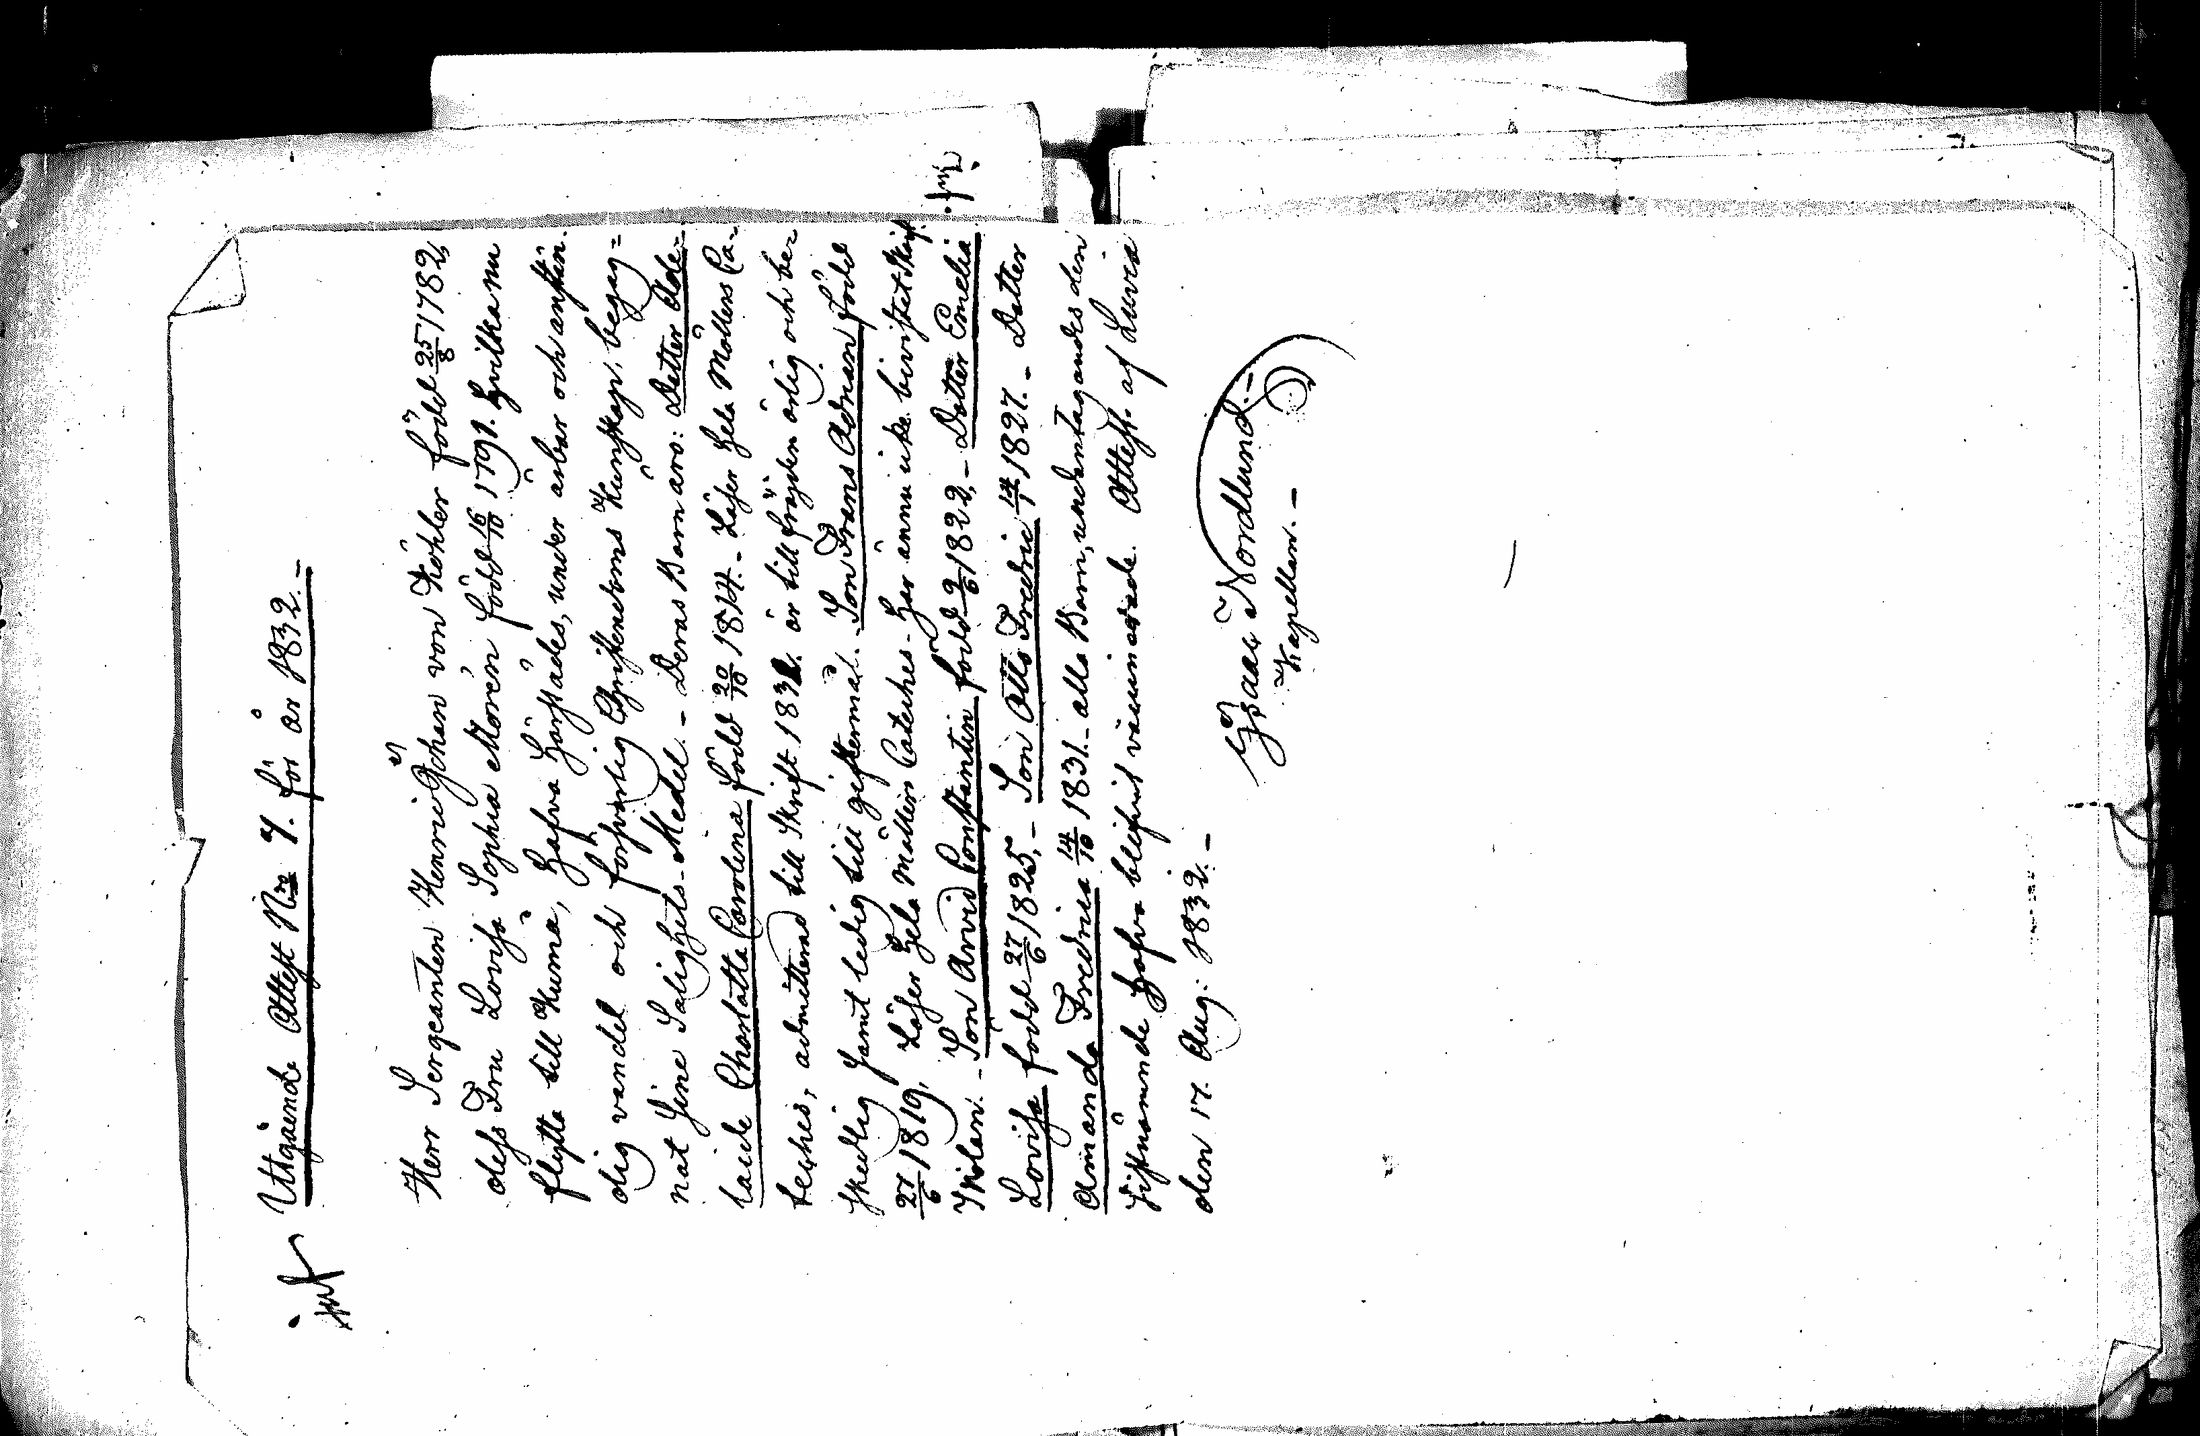 Utgående Attest Nro 7. för år 1832.-
Herr Sergeanten Henric Johan von Köhler född 25/8 1782,
dess Fru Lovisa Sophia Morén född 16/10 1791. Hvilka nu
flytta till Kumå, hafva härstädes, under ärbar och anstän-
dig vandel och försvarlig Christendoms Kunskap, begag=
nat sine Salighets-Medel. - Deras Barn äro: Dotter Ade=
laide Charlotta Carolina född 20/10 1814. - Läser hela Möllers Ca-
teches, admitterad till Skrift 1832. är till frägden ärlig och be-
skedlig samt ledig till giftermål. - Son Frans Adrian född
27/6 1819, Läser hela Möllers Cateches - har ännu icke bivistat Skrift
Skolan. - Son Arvid Constantin född 9/6 1822, - Dotter Emelia
Lovisa född 27/6 1825, - Son Otto Fredric 14/1 1827. - Dotter
Amanda Fredrica 14/10 1831. - alla Barn, undantagandes den
sistnämnde hafva blifvit vaccinerade. Attest. af Luvia
den 17. Aug: 1832. -
Isaac Nordlund. -
Kapellan. -